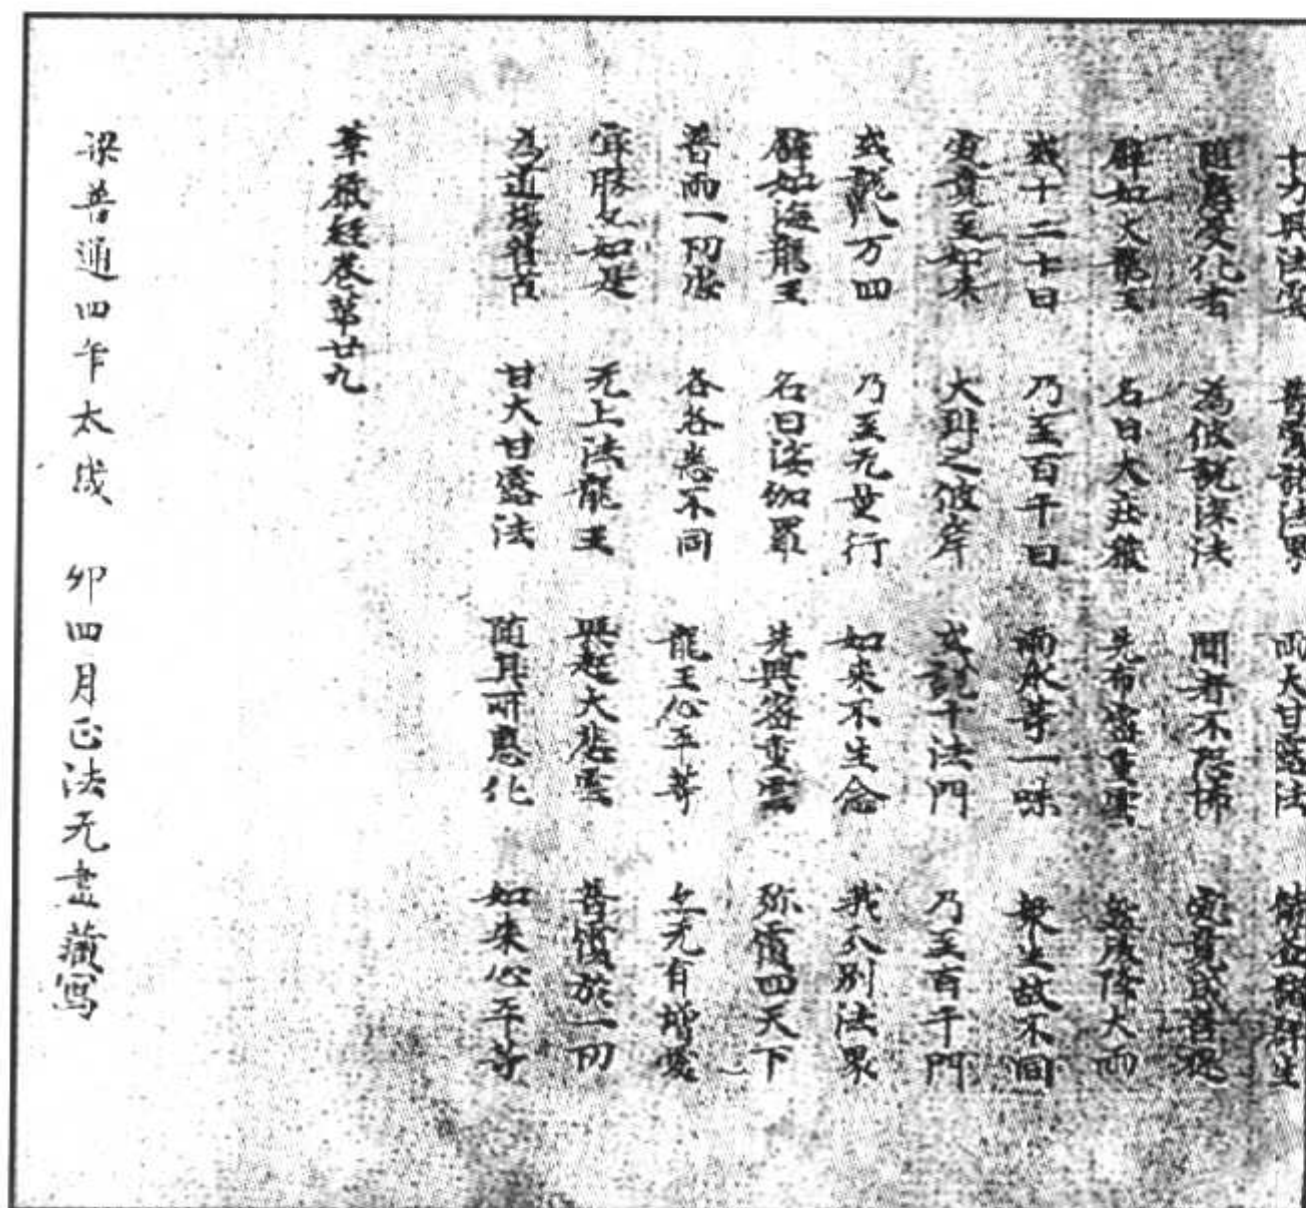 十力興法雲 普覆諸法界 雨大甘露法 饒益諸群生
隨應受化者 為彼説深法 聞者不恐怖 究竟成菩提
譬如大龍王 名曰大莊嚴 先布密重雲 然後降大雨
或十二十日 乃至百千日 雨水等一味 衆生故不同
究竟至如來 大辯之彼岸 或説十法門 乃至百千門
或説八万四 乃至无量行 如來不生念 我分別法界
譬如海龍王 名曰娑伽羅 先興密重雲 弥覆四天下
普雨一切處 各各悉不同 龍王心平等 亦无有增愛
㝡勝亦如是 无上法龍王 興起大悲雲 普覆於一切
為道場 甘大甘露法 隨其所應化 如來心平等
華嚴經卷第廿九
梁普通四年太歲 卯四月正法无盡藏寫